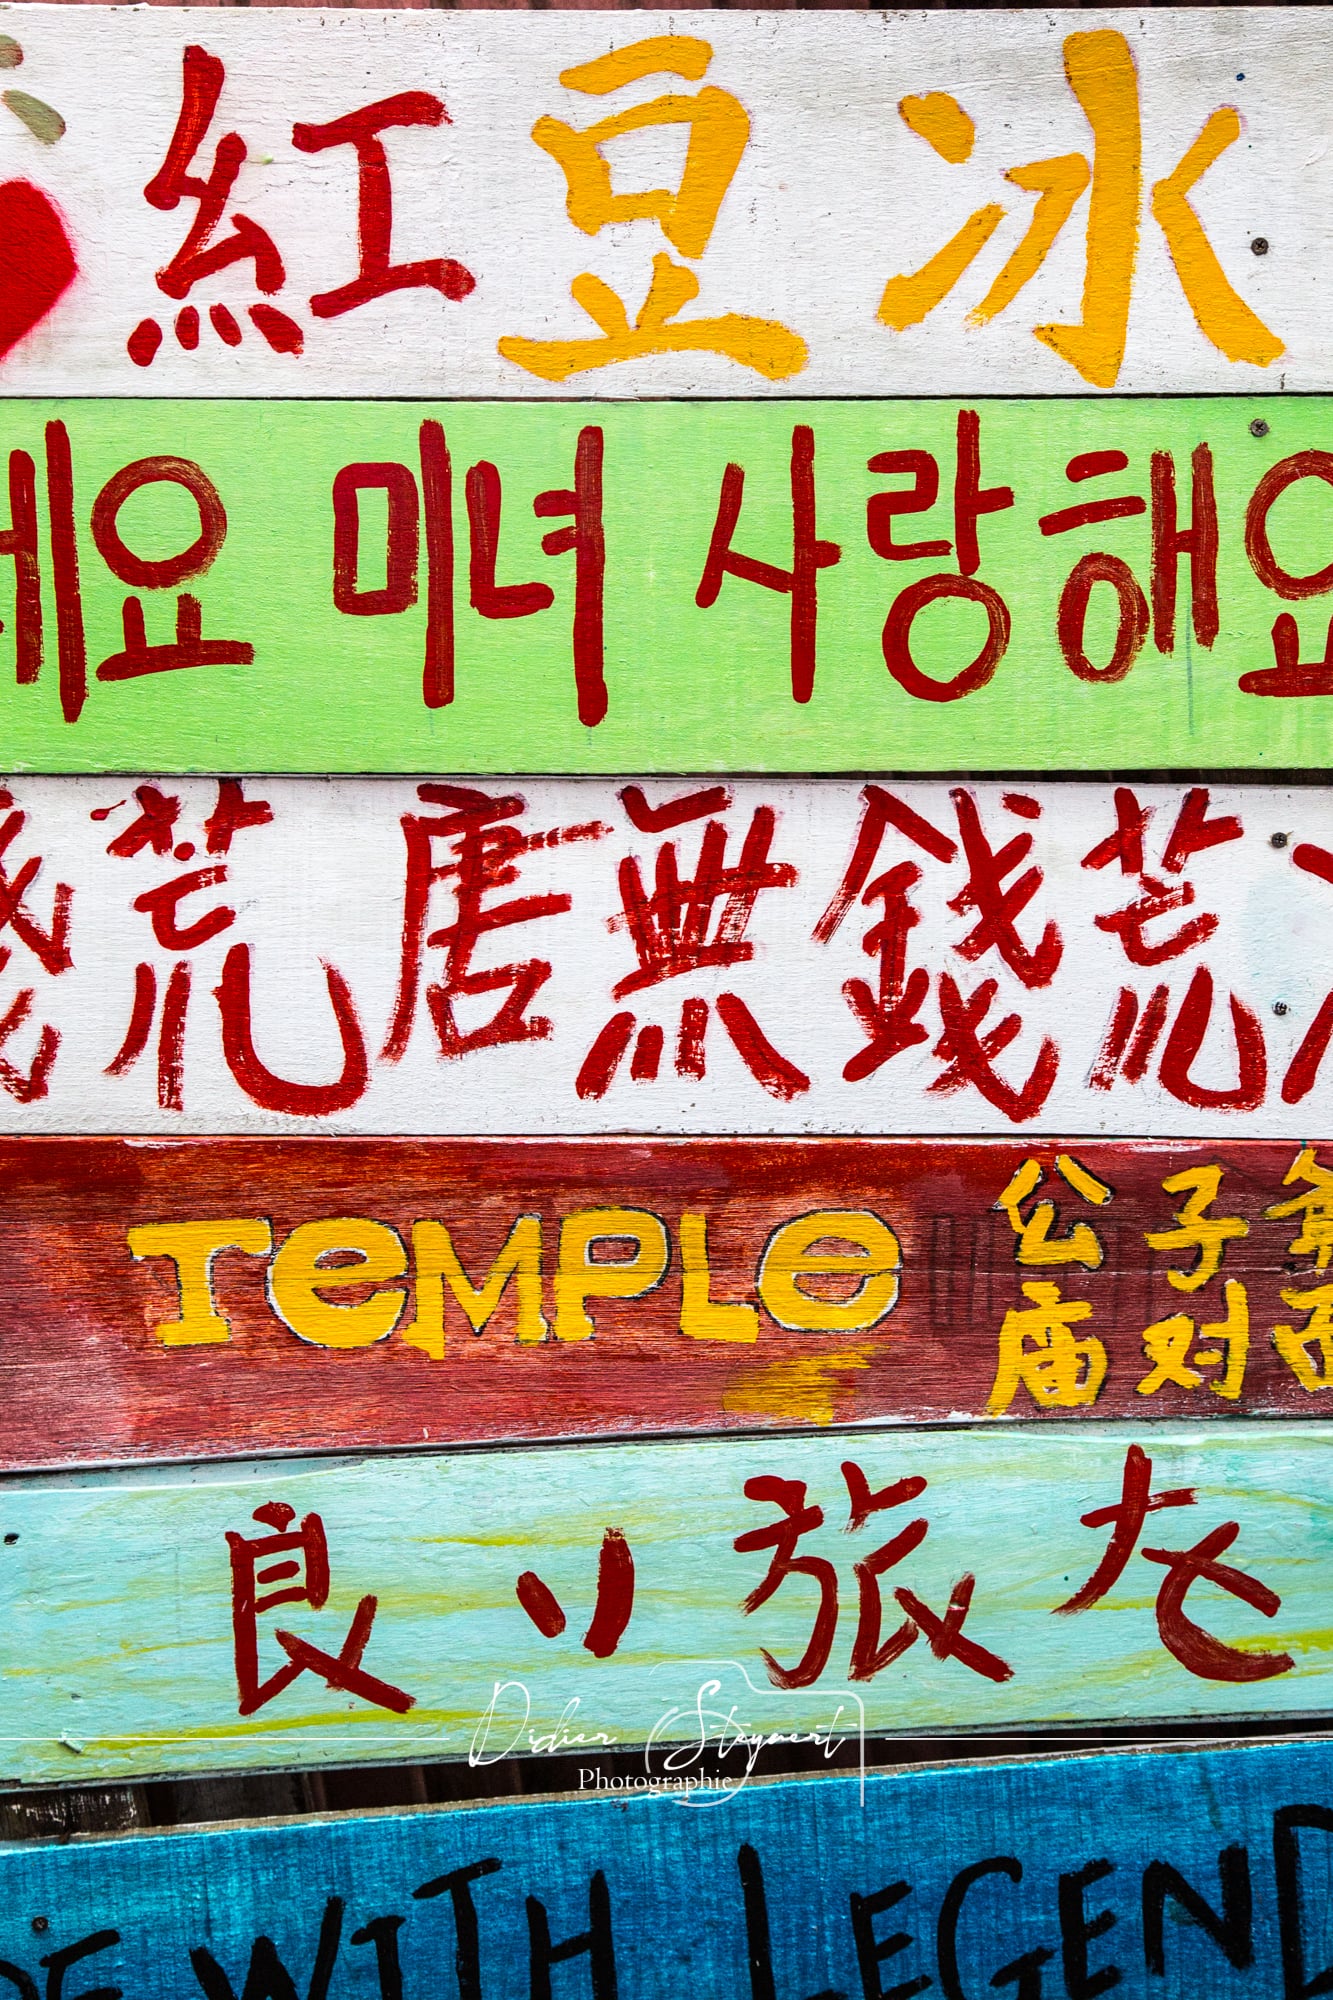 紅豆冰
세요 미녀 사랑해요
荒唐無錢荒
TEMPLE
公子
庙对
良心旅
Didier Steynert
Photographie
WITH LEGEND